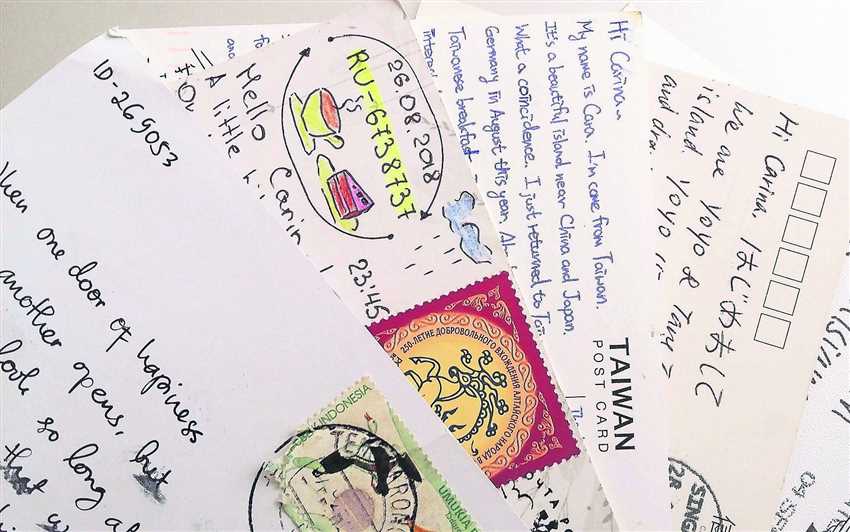 ID-269053
When one door of hapiness
another opens, but
look so long a
that
INDONESIA
26.08.2018
RU-6738737
Hello Carin
A little
23:45
250-ЛЕТИЕ ДОБРОВОЛЬНОГО ВХОЖДЕНИЯ АЛТАЙСКОГО НАРОДА В
Hi Carina~
My name is Cara. I'm come from Taiwan.
It's a beautiful island near China and Japan.
What a coincidence. I just returned to Tai
Germany in August this year. Ah
Taiwanese breakfast
TAIWAN
POST CARD
Hi Carina, はじめまして
We are Yoyo &
island. Yoyo
and
SING